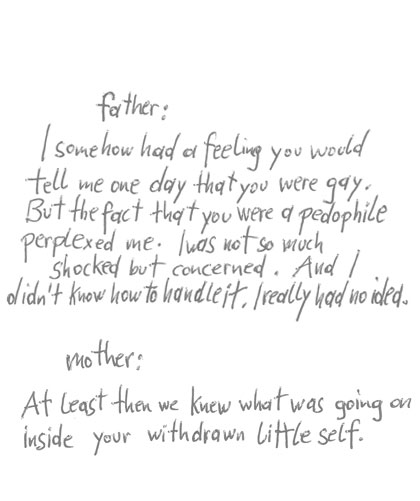 father:
I somehow had a feeling you would
tell me one day that you were gay.
But the fact that you were a pedophile
perplexed me. I was not so much
shocked but concerned. And I
didn't know how to handle it. I really had no idea.
mother:
At least then we knew what was going on
inside your withdrawn little self.